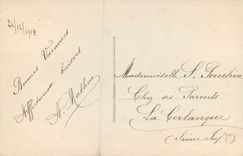 24/12/1914
Bonnes Vacances
Affectueux baisers
Mademoiselle S.
Chez ses Parents
La Cerlangue
Seine Infre